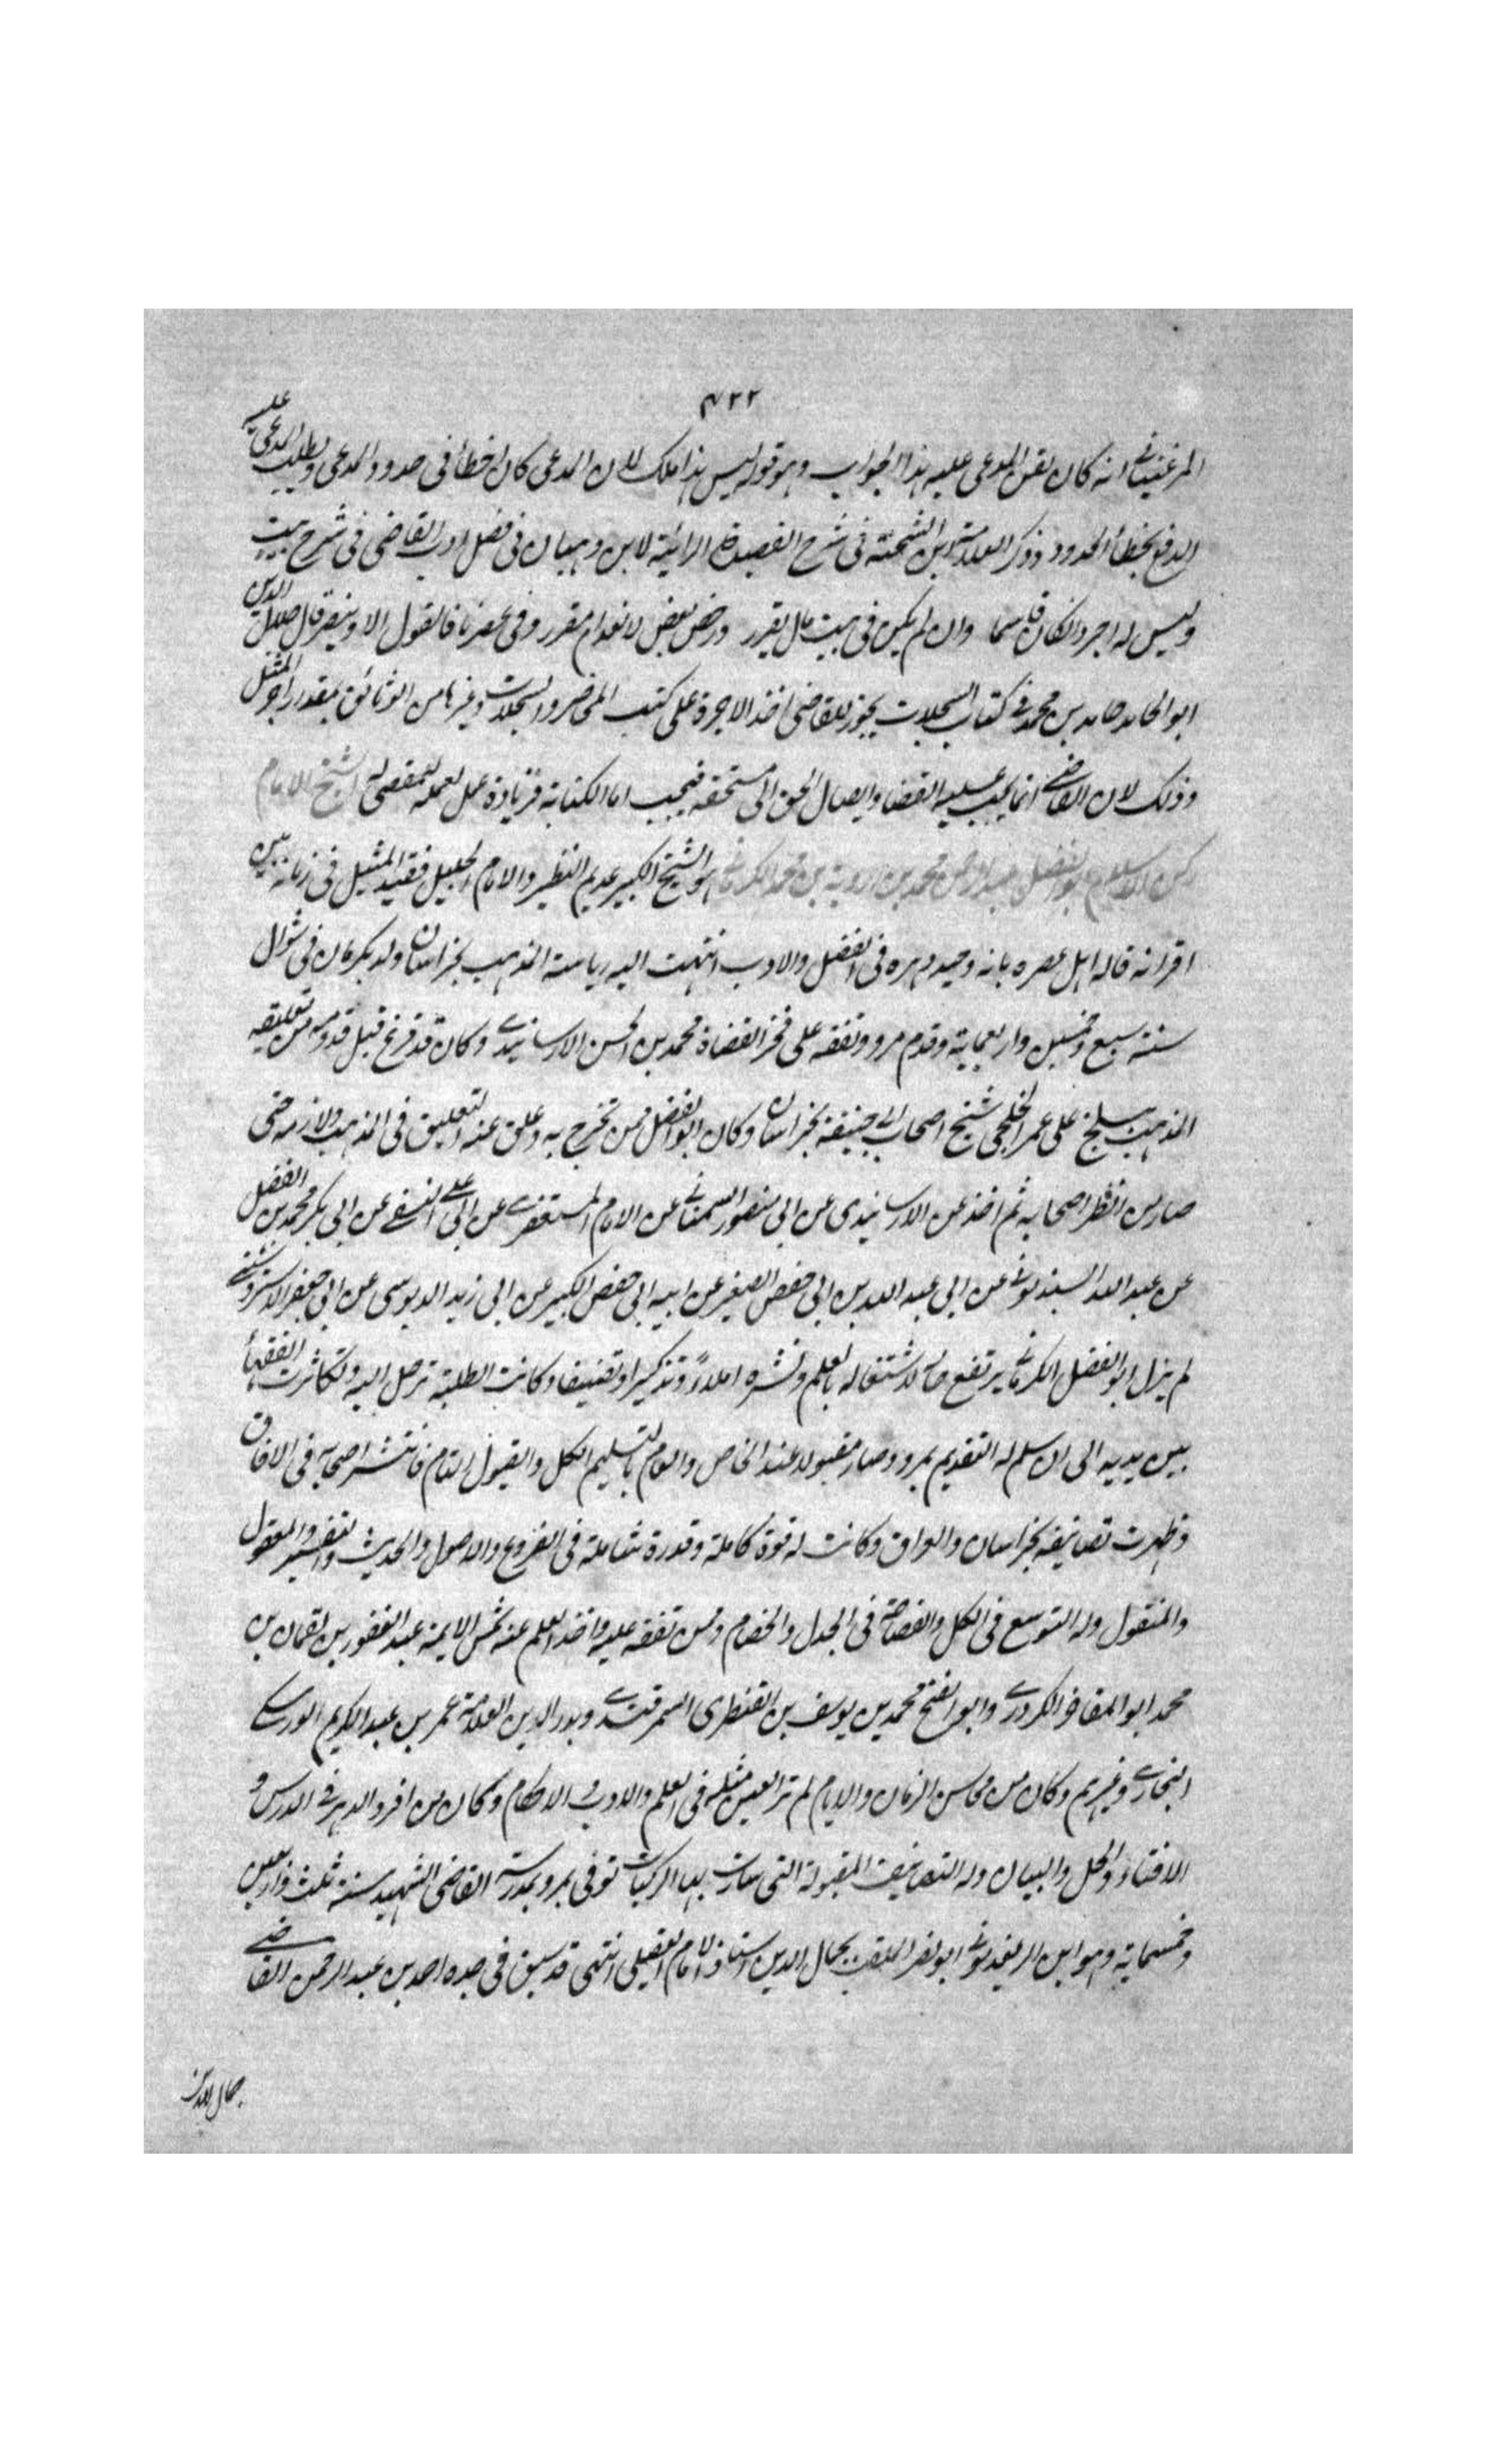 ٧٢٢
المرغينانى انه كان يلقن المدعى عليه هذا الجواب وهو قوله ليس هذا ملك لان المدعى كان اخطأ فى حدود المدعى ويطلب المدعى عليه
الدفع بخطأ الحدود وذكر العلامة ابن الشحنة فى شرح القصيدة الرائية لابن وهبان فى فصل ادب القاضى فى شرح بيت
وليس له اجر وان كان قاسما وان لم يكن فى بيت مال يقرر ورخص بعض لانعدام مقرر وفى عصرنا فالقول الاول ينصر قال جلال الدين
ابو المحامد حامد بن محمد فى كتاب السجلات يجوز للقاضى اخذ الاجرة على كتب المحاضر والسجلات وغيرها من الوثائق بمقدار اجر المثل
وذلك لان القاضى انما يجب عليه القضا وايصال الحق الى مستحقه فيجب اما الكتابة فزيادة عمل لعمله للمقضى له الشيخ الامام
ركن الاسلام ابو الفضل عبد الرحمن بن محمد بن اميرويه بن محمد الكرمانى هو الشيخ الكبير عديم النظير والامام الجليل فقيد المثيل فى زمانه بين
اقرانه قاله اهل عصره بانه وحيد دهره فى الفضل والادب انتهت اليه رياسة المذهب بخراسان ولد بكرمان فى شوال
سنة سبع وخمسين واربعماية وقدم مرو وتفقه على فخر القضاة محمد بن الحسن الارسابندى وكان قد فرغ قبل قدومه من تعليقه
المذهب ببلخ على عمر الخلجى شيخ اصحاب ابى حنيفة بخراسان وكان ابو الفضل ممن تخرج به وعلق عنه التعليق فى المذهب ولازمه حتى
صار من انظر اصحابه ثم اخذ عن الارسابندى عن ابى منصور السمعانى عن الامام المستغفرى عن ابى على النسفى عن ابى بكر محمد بن الفضل
عن عبد الله السبذمونى عن ابى عبد الله بن ابى حفص الصغير عن ابيه ابى حفص الكبير عن ابى زيد الدبوسى عن ابى جعفر الاستروشنى
لم يزل ابو الفضل الكرمانى يرتفع حاله لاشتغاله بالعلم ونشره املاءً وتذكيرا وتصنيفا وكانت الطلبة ترحل اليه وتكاثرت الفقهاء
بين يديه الى ان سلم له التقديم بمرو وصار مقبولا عند الخاص والعام بالتسليم الكل والقبول التام فانتشر اصحابه فى الافاق
وظهرت تصانيفه بخراسان والعراق وكانت له قوة كاملة وقدرة شاملة فى الفروع والاصول والحديث والتفسير والمعقول
والمنقول وله التوسع فى الكل والفصاحة فى الجدل والخصام وممن تفقه عليه واخذ العلم عنه شمس الايمة عبد الغفور بن لقمان بن
محمد ابو المفاخر الكردرى وابو الفتح محمد بن يوسف بن القنطرى السمرقندى وبدر الدين العلامة عمر بن عبد الكريم الورسكى
البخارى وغيرهم وكان من محاسن الزمان والايام لم تر العين مثله فى العلم والادب والاحكام وكان من افراد الدهر فى الدرس و
الافتاء والحل والبيان وله التصانيف المقبولة التى سارت بها الركبان توفى بمرو بمدرسة القاضى الشهيد سنة ثلث واربعين
وخمسماية وهو ابن الريغدمونى ابو نصر الملقب بجمال الدين استاذ الامام العقيلى انتهى قد سبق فى جده احمد بن عبد الرحمن القاضى
جمال الدين